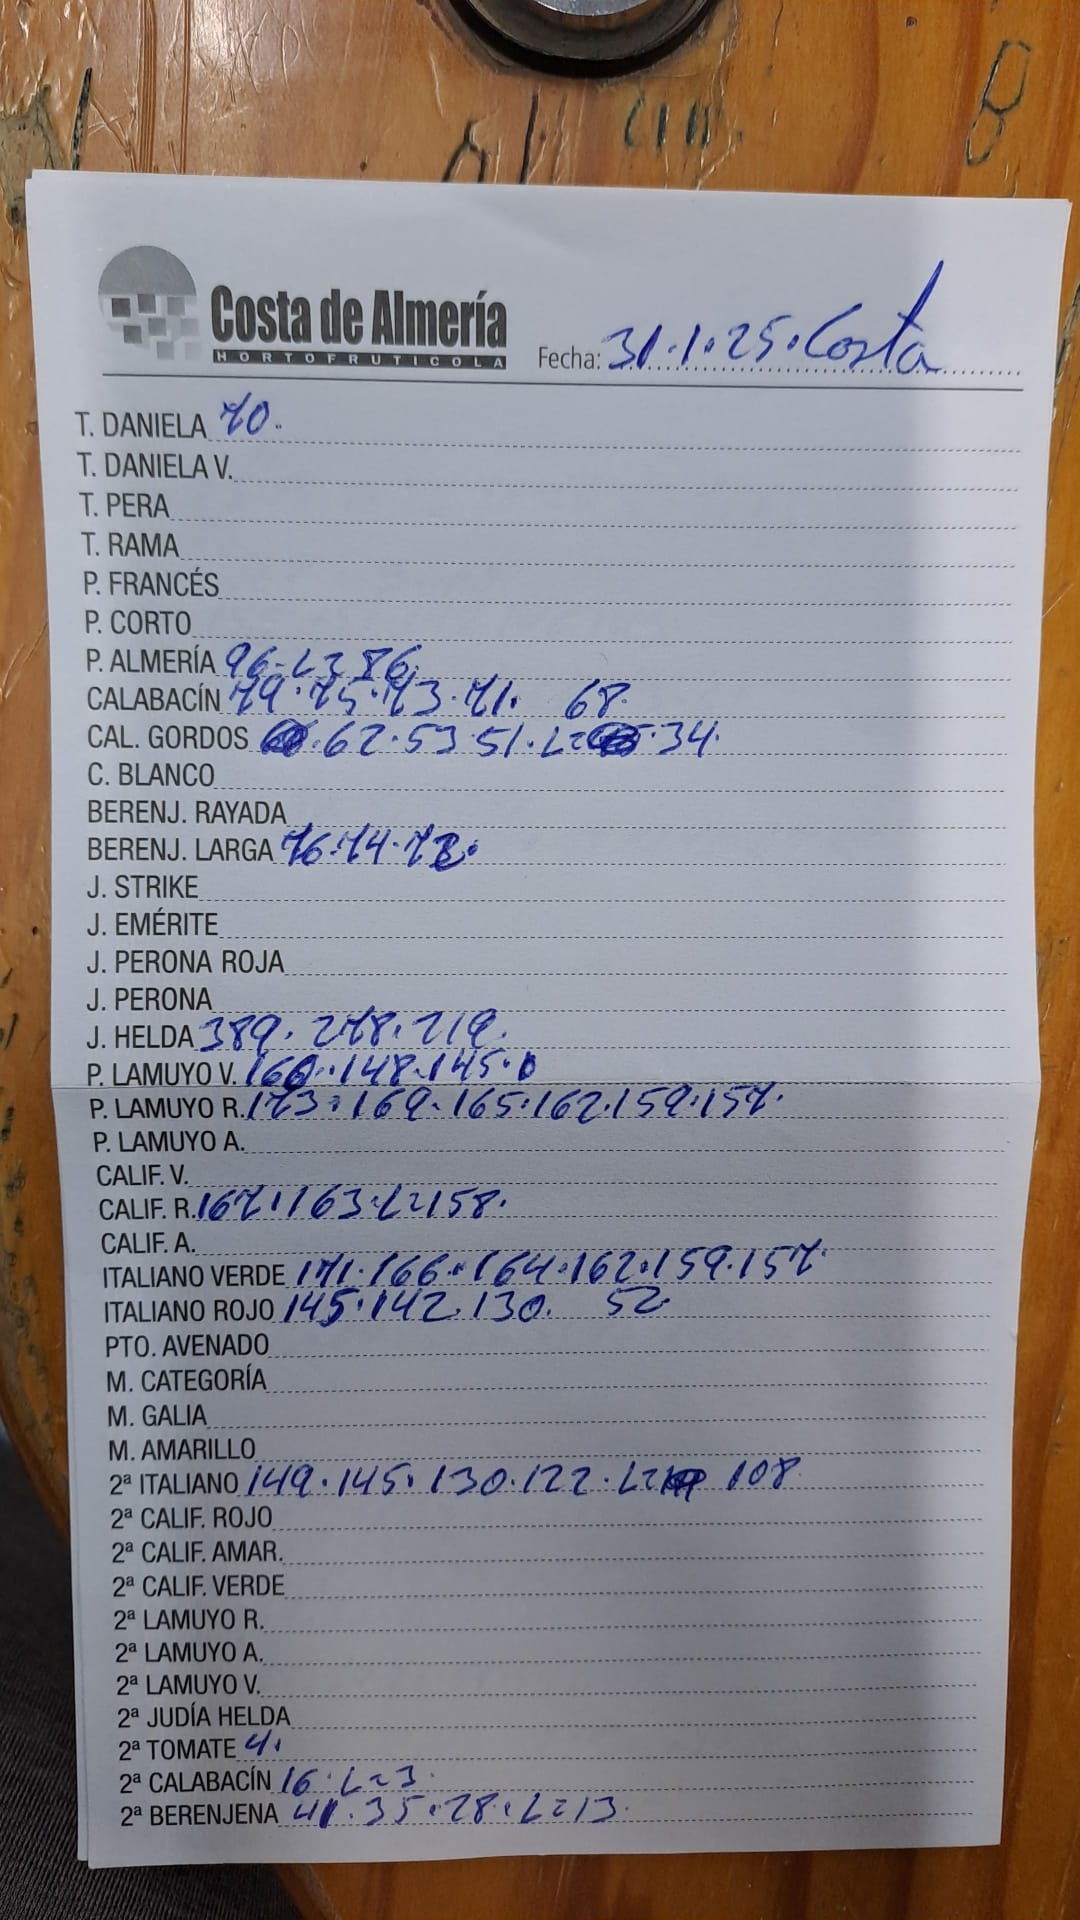 Costa de Almería
HORTOFRUTICOLA
Fecha: 31.1.25. Costa
T. DANIELA 70.
T. DANIELA V.
T. PERA
T. RAMA
P. FRANCÉS
P. CORTO
P. ALMERÍA 96-L=86.
CALABACÍN 79.75.73.71. 68.
CAL. GORDOS .62.53.51.L= 34.
C. BLANCO
BERENJ. RAYADA
BERENJ. LARGA 76.74.73.
J. STRIKE
J. EMÉRITE
J. PERONA ROJA
J. PERONA
J. HELDA 389. 278. 219.
P. LAMUYO V. 160.148.145.
P. LAMUYO R. 173.169.165.162.159.157.
P. LAMUYO A.
CALIF. V.
CALIF. R. 167.163.L=158.
CALIF. A.
ITALIANO VERDE 171.166.164.162.159.157.
ITALIANO ROJO 145.142.130. 52.
PTO. AVENADO
M. CATEGORÍA
M. GALIA
M. AMARILLO
2ª ITALIANO 149.145.130.122.L= 108.
2ª CALIF. ROJO
2ª CALIF. AMAR.
2ª CALIF. VERDE
2ª LAMUYO R.
2ª LAMUYO A.
2ª LAMUYO V.
2ª JUDÍA HELDA
2ª TOMATE 41
2ª CALABACÍN 16.L=3.
2ª BERENJENA 41.35.28.L=13.